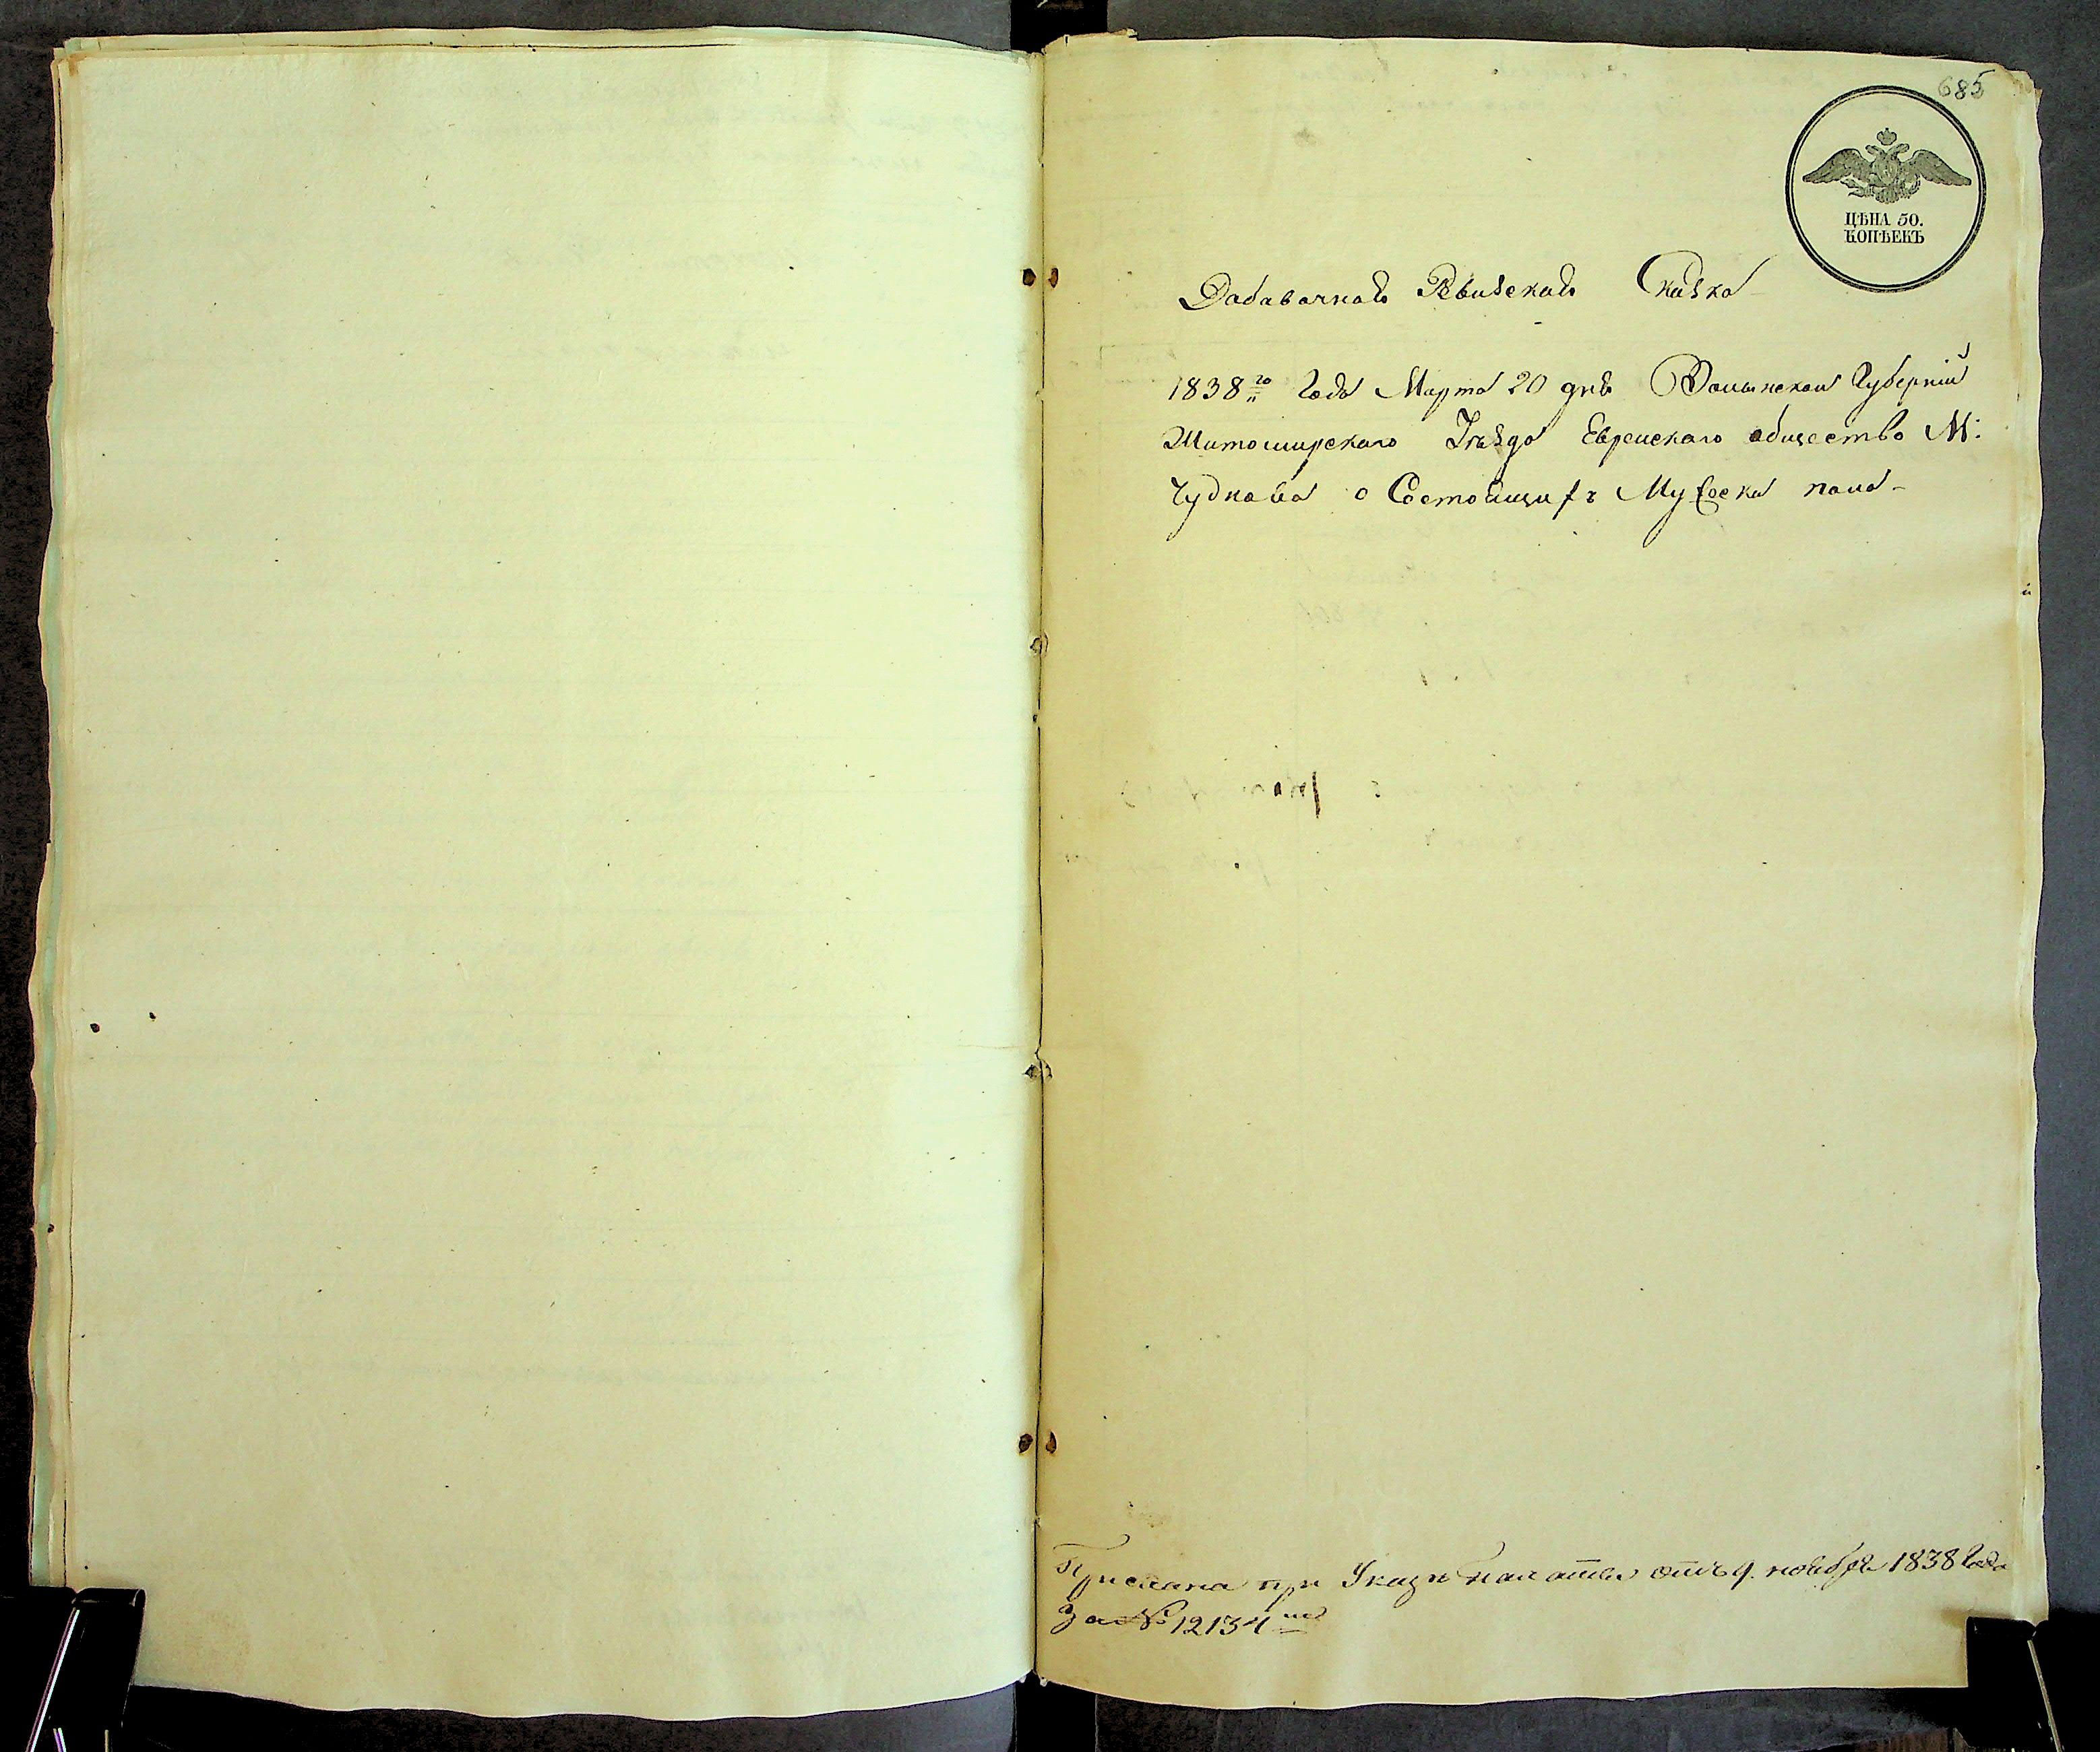 685
ЦѢНА 50.
КОПѢЕКЪ
Дабавачная Ревизская Сказка
1838го Года Марта 20 дня Волынскои Губерніи
Житомирскаго Уѣзда Евреискаго общество М:
Чуднова о Состоящихъ Мужеска пола -
Прислана при Указѣ Палаты отъ 9. ноября 1838 Года
За № 12134мъ